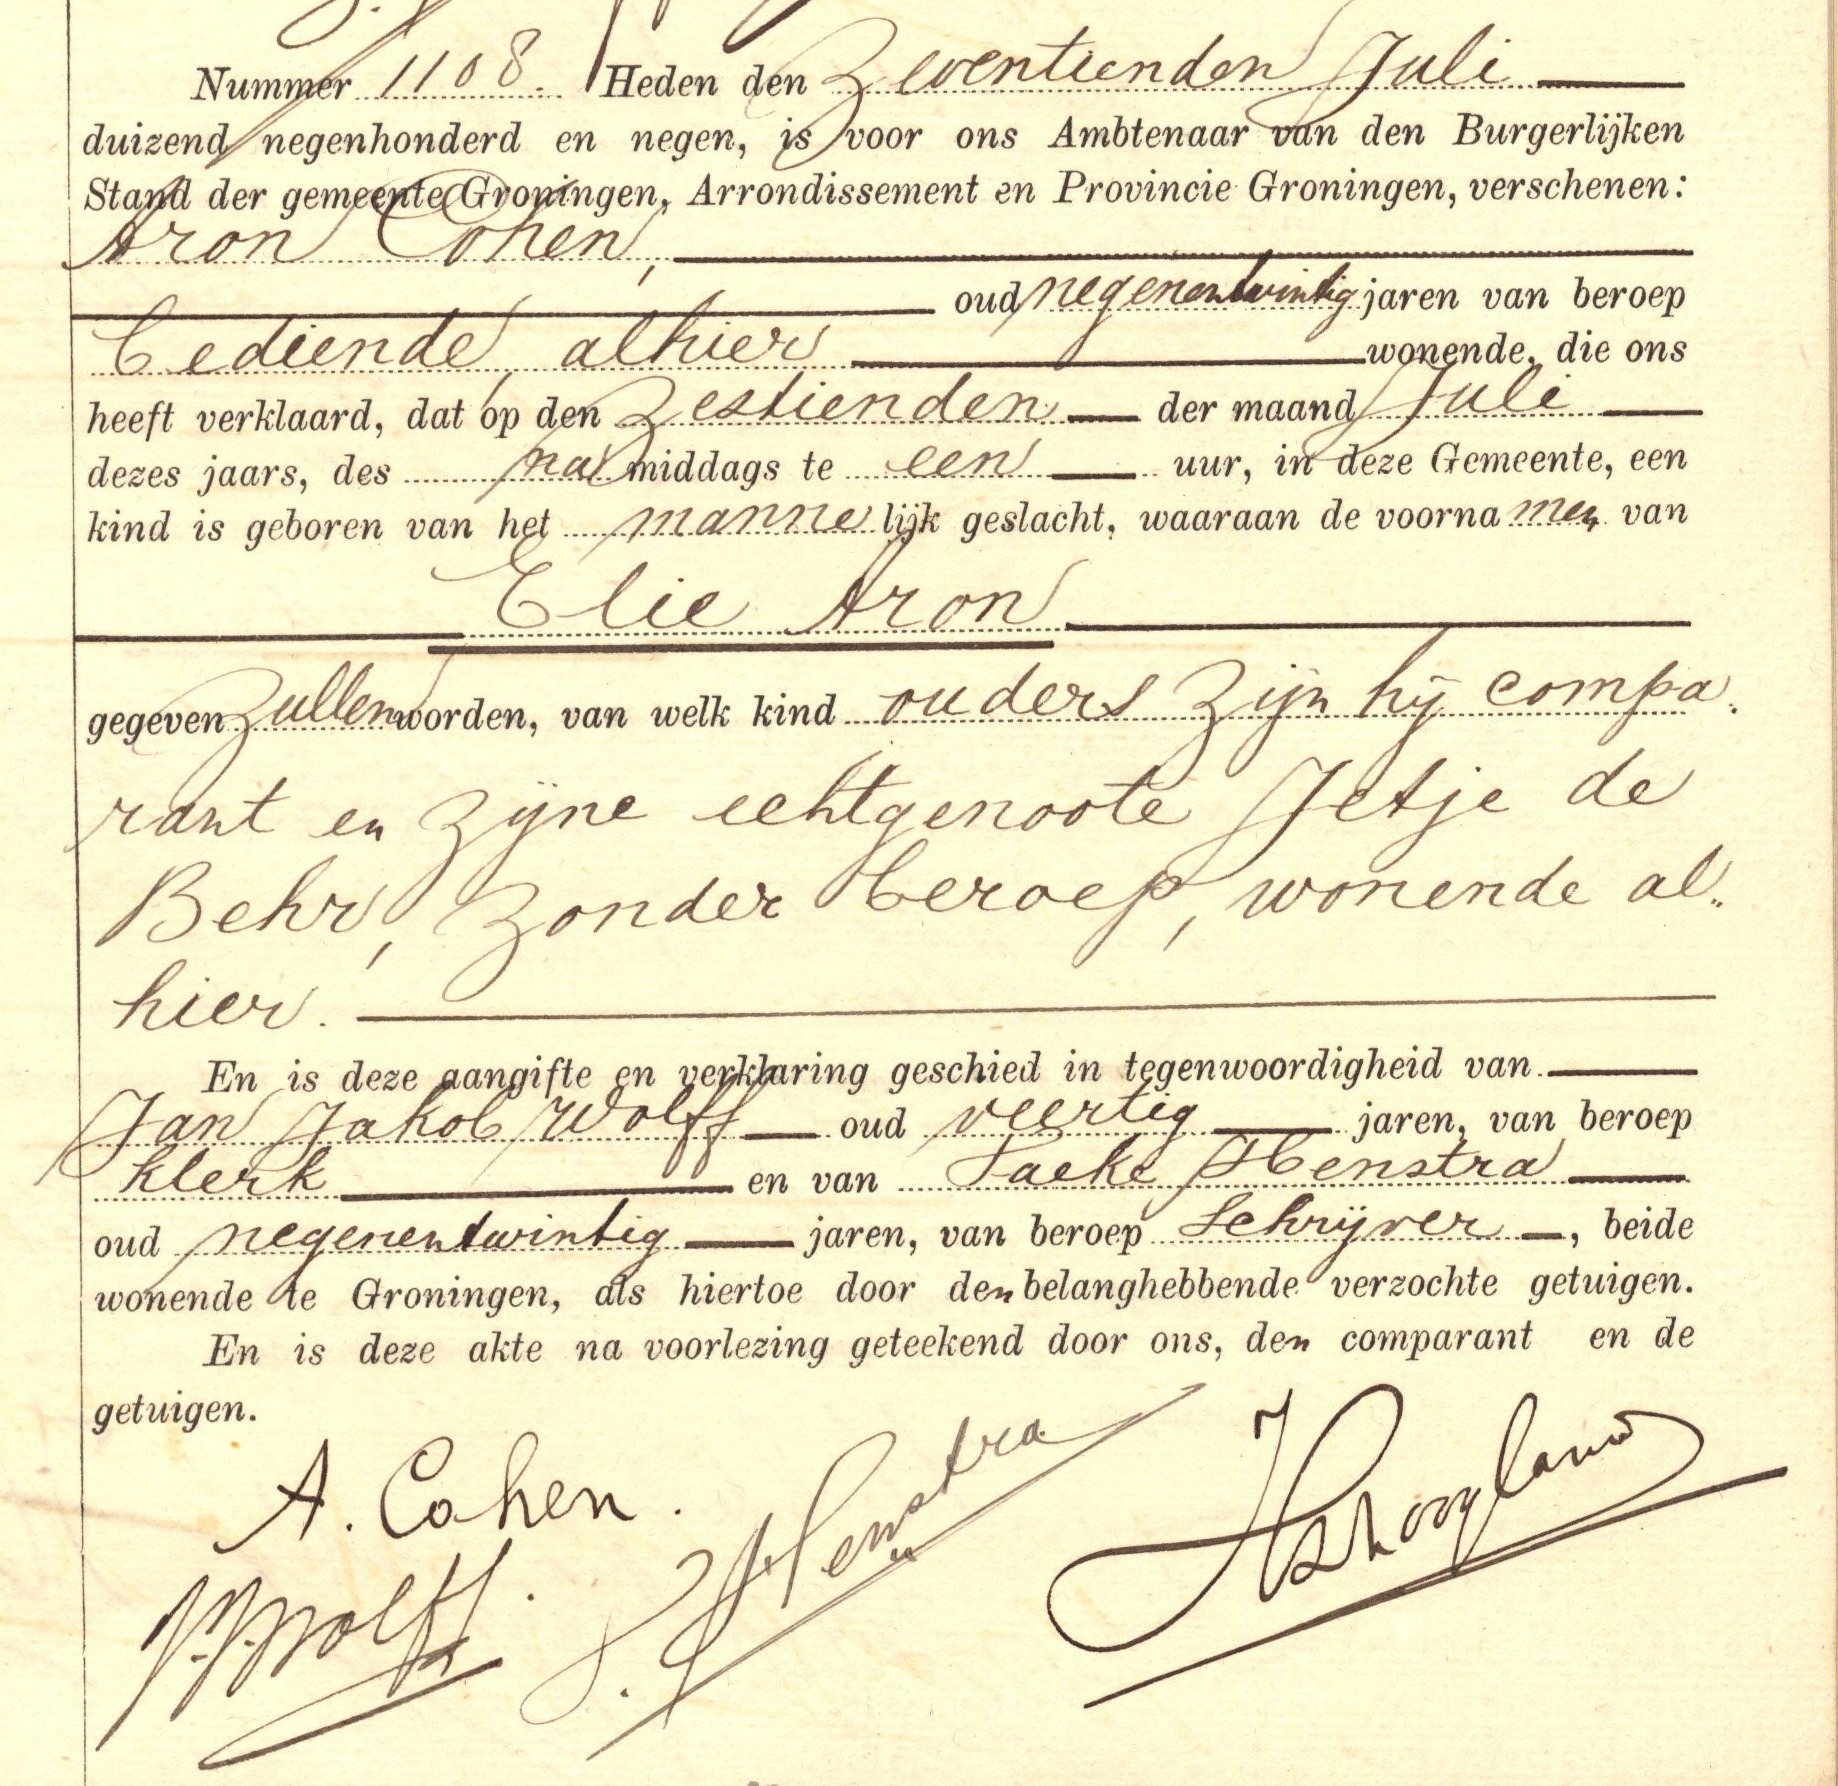 Nummer 1108. Heden den Zeventienden Juli
duizend negenhonderd en negen, is voor ons Ambtenaar van den Burgerlijken
Stand der gemeente Groningen, Arrondissement en Provincie Groningen, verschenen:
Aron Cohen,
oud negenentwintig jaren van beroep
bediende, alhier wonende, die ons
heeft verklaard, dat op den Zestienden der maand Juli
dezes jaars, des na middags te een uur, in deze Gemeente, een
kind is geboren van het manne lijk geslacht, waaraan de voorna men van
Elie Aron
gegeven Zullen worden, van welk kind ouders Zijn hij compa-
rant en Zijne echtgenoote Jetje de
Behr, Zonder beroep, wonende al-
hier.
En is deze aangifte en verklaring geschied in tegenwoordigheid van
Jan Jakob Wolff oud veertig jaren, van beroep
klerk en van Taeke Henstra
oud negenentwintig jaren, van beroep Schrijver, beide
wonende te Groningen, als hiertoe door den belanghebbende verzochte getuigen.
En is deze akte na voorlezing geteekend door ons, den comparant en de
getuigen.
A. Cohen.
J.J. Wolff.
T. Henstra